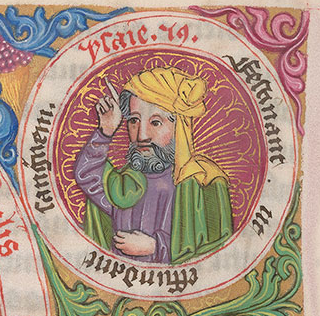 ysaie. 59.
festinant · ut effundant sanguinem.